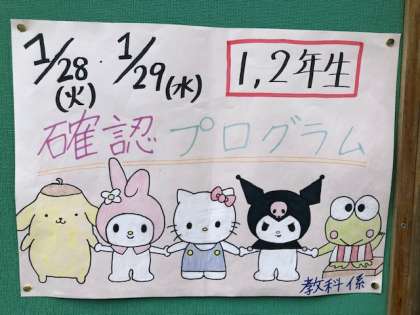 1/28(火)・1/29(水)
1,2年生
確認プログラム
教科係